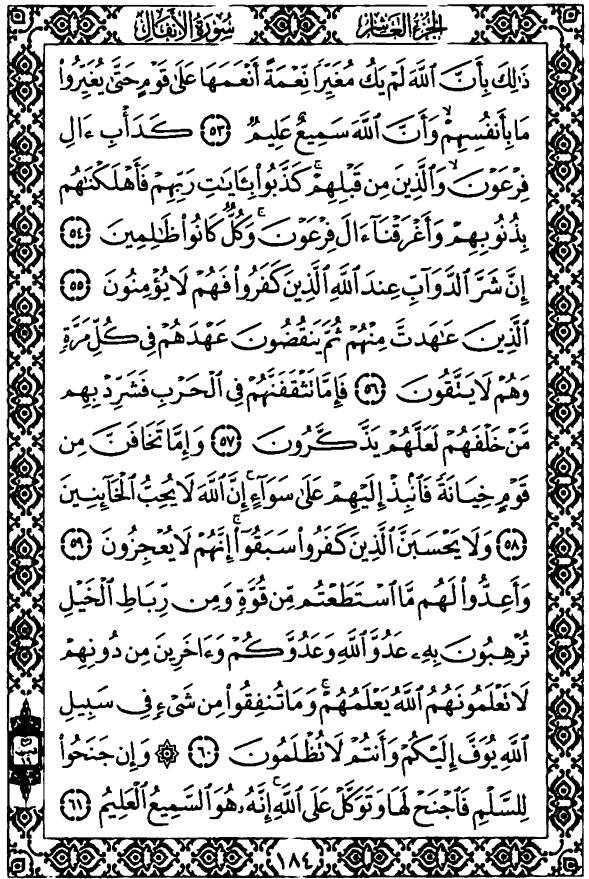 الجزء العاشر
سورة الأنفال
ذَٰلِكَ بِأَنَّ ٱللَّهَ لَمۡ يَكُ مُغَيِّرٗا نِّعۡمَةً أَنۡعَمَهَا عَلَىٰ قَوۡمٍ حَتَّىٰ يُغَيِّرُواْ
مَا بِأَنفُسِهِمۡۙ وَأَنَّ ٱللَّهَ سَمِيعٌ عَلِيمٞ ٥٣ كَدَأۡبِ ءَالِ
فِرۡعَوۡنَۙ وَٱلَّذِينَ مِن قَبۡلِهِمۡۚ كَذَّبُواْ بِـَٔايَٰتِ رَبِّهِمۡ فَأَهۡلَكۡنَٰهُم
بِذُنُوبِهِمۡ وَأَغۡرَقۡنَآ ءَالَ فِرۡعَوۡنَۚ وَكُلّٞ كَانُواْ ظَٰلِمِينَ ٥٤
إِنَّ شَرَّ ٱلدَّوَآبِّ عِندَ ٱللَّهِ ٱلَّذِينَ كَفَرُواْ فَهُمۡ لَا يُؤۡمِنُونَ ٥٥
ٱلَّذِينَ عَٰهَدتَّ مِنۡهُمۡ ثُمَّ يَنقُضُونَ عَهۡدَهُمۡ فِي كُلِّ مَرَّةٖ
وَهُمۡ لَا يَتَّقُونَ ٥٦ فَإِمَّا تَثۡقَفَنَّهُمۡ فِي ٱلۡحَرۡبِ فَشَرِّدۡ بِهِم
مَّنۡ خَلۡفَهُمۡ لَعَلَّهُمۡ يَذَّكَّرُونَ ٥٧ وَإِمَّا تَخَافَنَّ مِن
قَوۡمٍ خِيَانَةٗ فَٱنۢبِذۡ إِلَيۡهِمۡ عَلَىٰ سَوَآءٍۚ إِنَّ ٱللَّهَ لَا يُحِبُّ ٱلۡخَآئِنِينَ
٥٨ وَلَا يَحۡسَبَنَّ ٱلَّذِينَ كَفَرُواْ سَبَقُوٓاْۚ إِنَّهُمۡ لَا يُعۡجِزُونَ ٥٩
وَأَعِدُّواْ لَهُم مَّا ٱسۡتَطَعۡتُم مِّن قُوَّةٖ وَمِن رِّبَاطِ ٱلۡخَيۡلِ
تُرۡهِبُونَ بِهِۦ عَدُوَّ ٱللَّهِ وَعَدُوَّكُمۡ وَءَاخَرِينَ مِن دُونِهِمۡ
لَا تَعۡلَمُونَهُمُ ٱللَّهُ يَعۡلَمُهُمۡۚ وَمَا تُنفِقُواْ مِن شَيۡءٖ فِي سَبِيلِ
ٱللَّهِ يُوَفَّ إِلَيۡكُمۡ وَأَنتُمۡ لَا تُظۡلَمُونَ ٦٠ ۞ وَإِن جَنَحُواْ
لِلسَّلۡمِ فَٱجۡنَحۡ لَهَا وَتَوَكَّلۡ عَلَى ٱللَّهِۚ إِنَّهُۥ هُوَ ٱلسَّمِيعُ ٱلۡعَلِيمُ ٦١
١٨٤